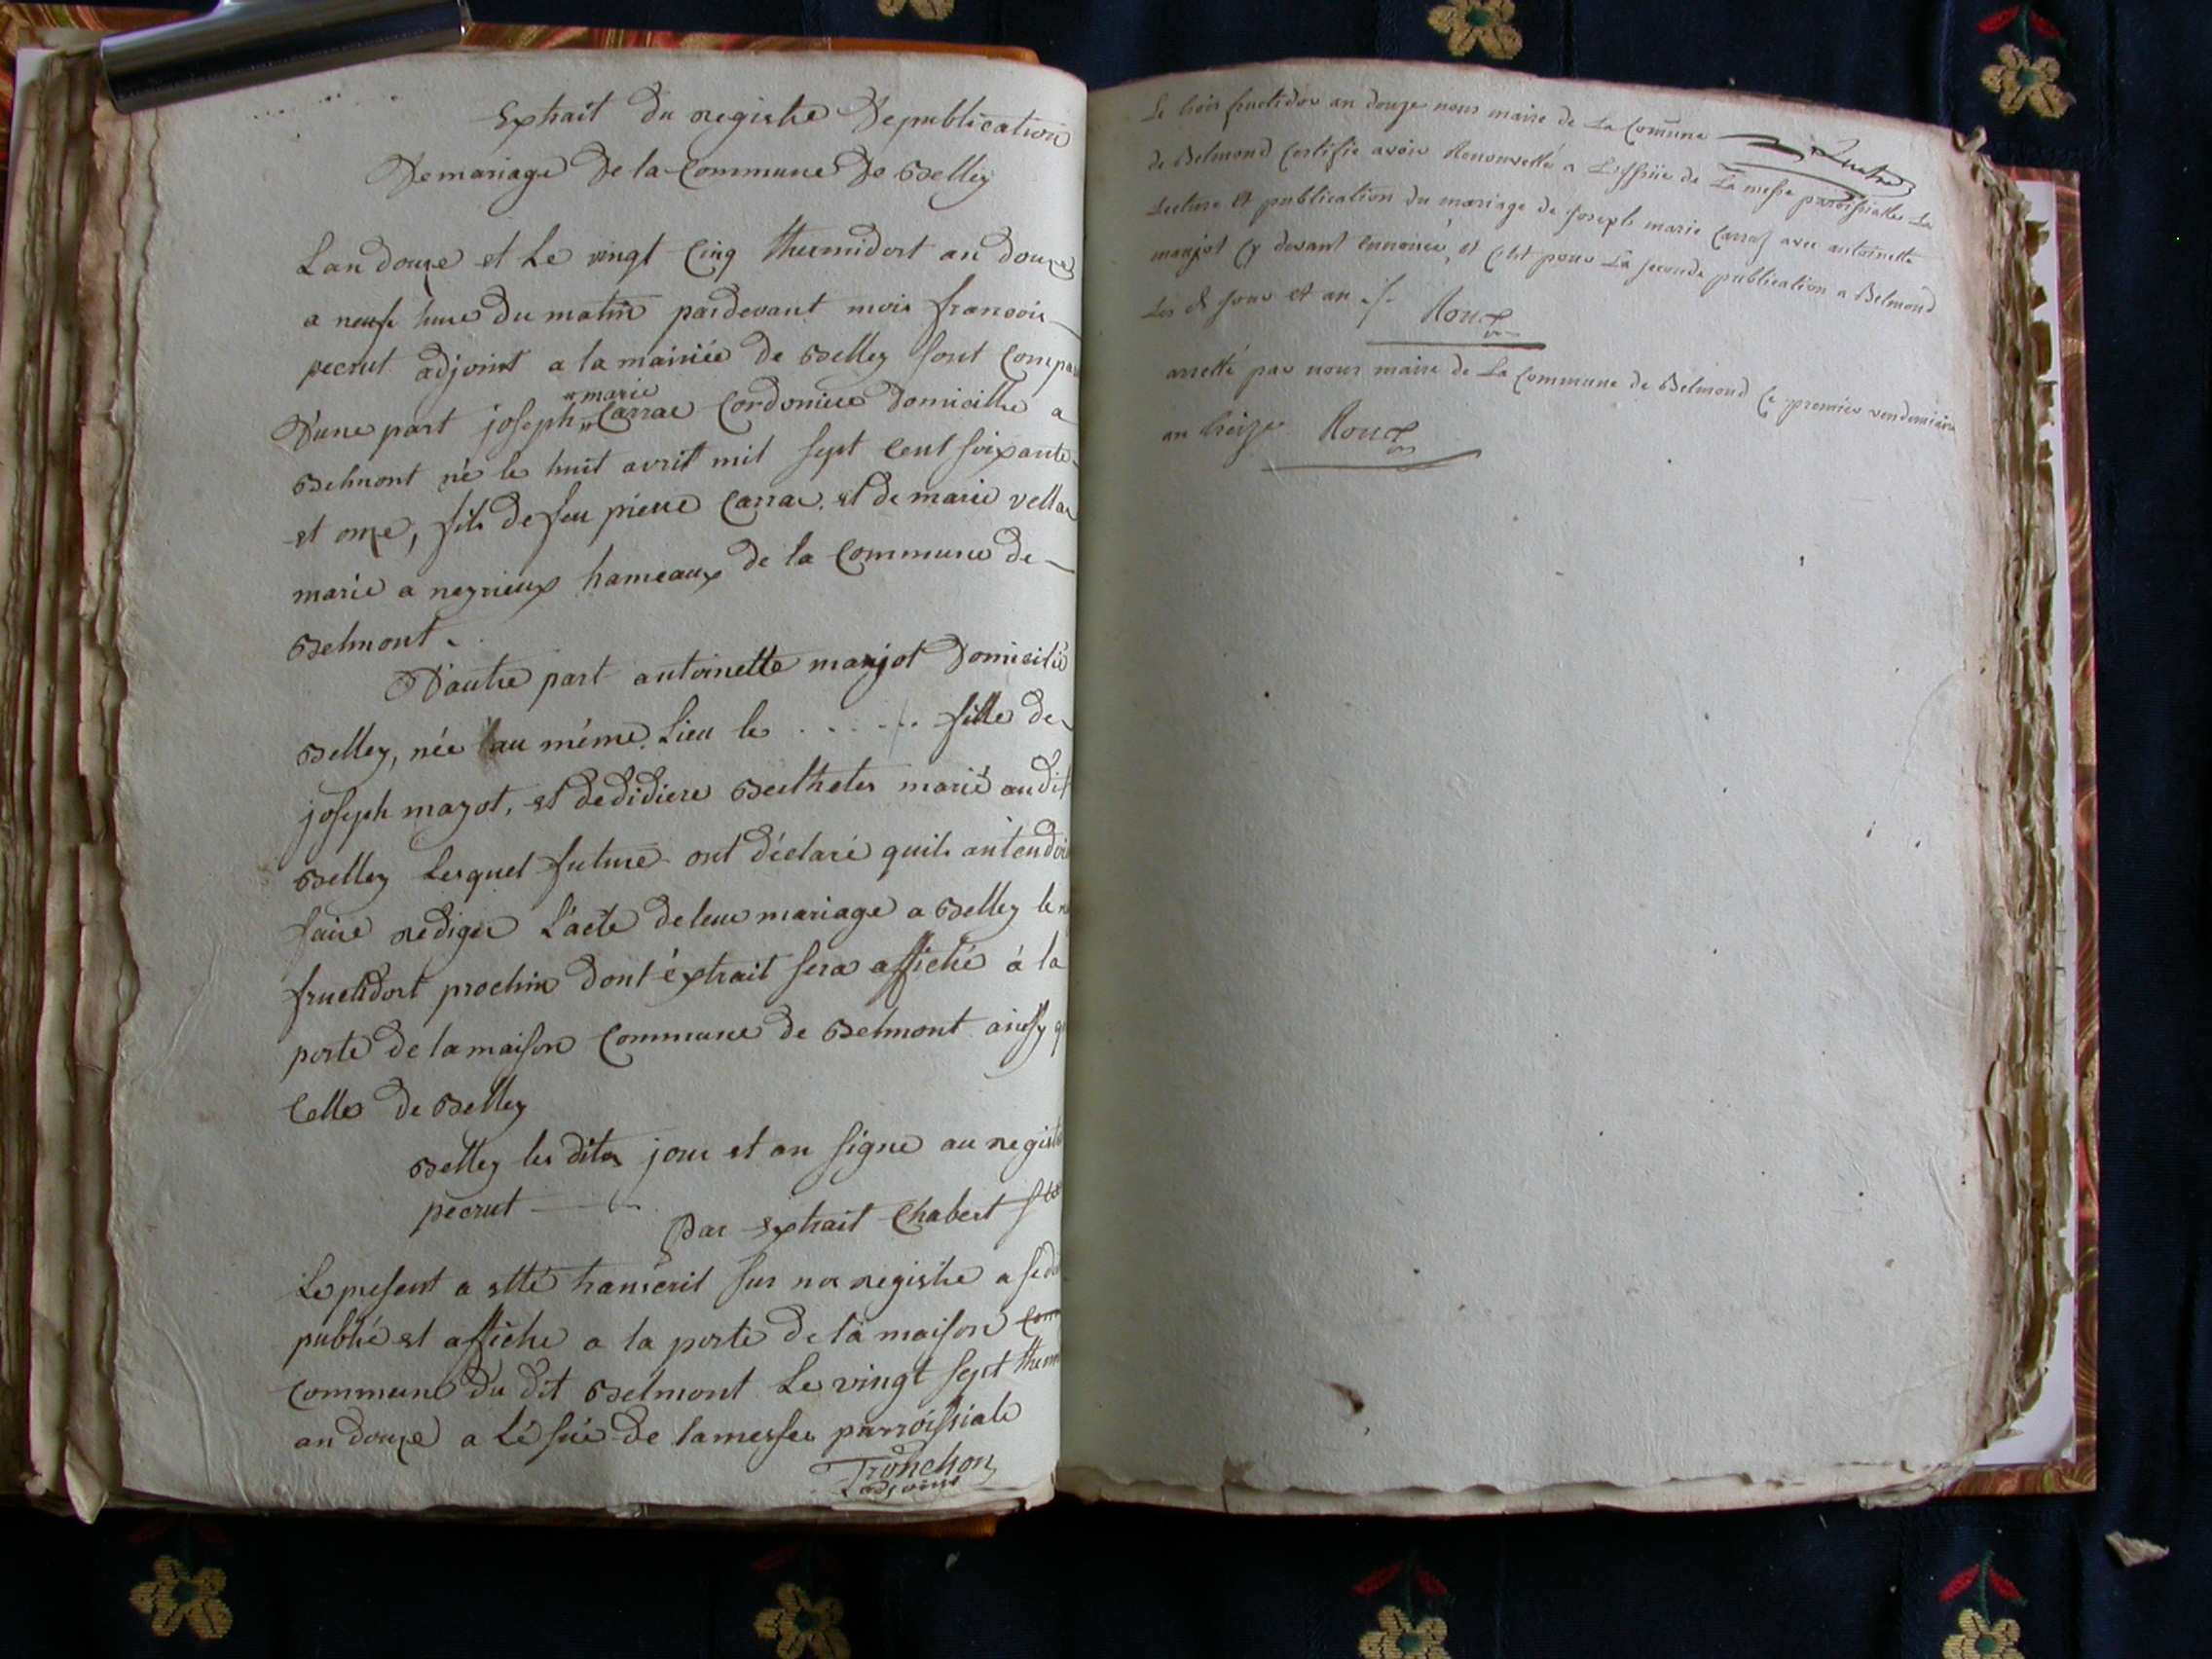 Extrait du registre de publication
de mariage de la Commune de Belley
L'an douze et le vingt cinq thermidort an douze
a neufe heure du matin pardevant mois francois
pecrut adjoint a la mairiée de Belley sont compa
D'une part joseph "marie" Carrac Cordoniere domicillie a
Belmont né le huit avrit mil sept cent soixante
et onze, fils de feu piérre Carrac et de marie vella
marié a neyrieux hameaux de la Commune de
Belmont.
D'autre part antoinette manjot domicilié
Belley, née au méme Lieu le ..... fille de
joseph mazot, et de didiere Berthelet marié audit
Belley Lesquel future ont déclaré quils antendoi
faire rediger L'acte de leur mariage a Belley le
fructidort prochin dont éxtrait sera affiché à la
porte de la maison Commune de Belmont ainssy q
Celle de Belley
Belley les dites jour et an signe au regist
pecrut Par Extrait Chabert
Le present a etté transcrit sur nos registre a
publié et affiche a la porte de la maison Com
commune du dit Belmont Le vingt sept therm
an douze a Lésuié de la messe parroissiale
Tronchon
L'adjoint
Le trois fructidor an douze nous maire de La Comune
de Belmond Certifie avoir Renouvellé a L'issüe de La messe paroissialle La
Lecture et publication du mariage de joseph marie Carraz avec antoinette
manjot Cy devant ennoncé, et c'est pour La seconde publication a Belmond
Les d. jour et an ./. Roux
arretté par nous maire de La Commune de Belmond Ce premier vendemiaire
an treize Roux